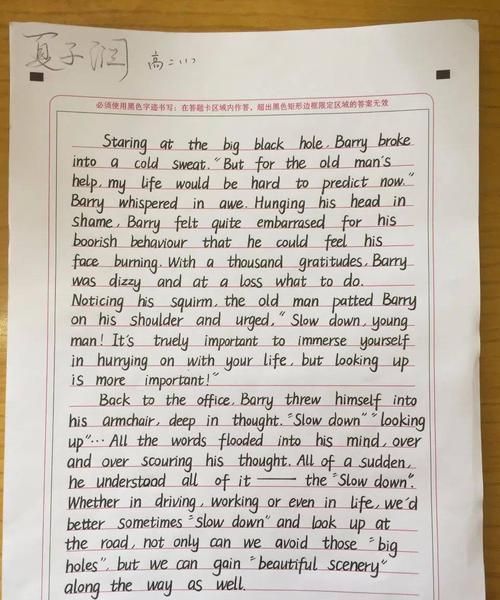 夏子涵 高二(1)
必须使用黑色字迹书写；在答题卡区域内作答，超出黑色矩形边框限定区域的答案无效
Staring at the big black hole, Barry broke
into a cold sweat. "But for the old man's
help, my life would be hard to predict now."
Barry whispered in awe. Hunging his head in
shame, Barry felt quite embarrased for his
boorish behaviour that he could feel his
face burning. With a thousand gratitudes, Barry
was dizzy and at a loss what to do.
Noticing his squirm, the old man patted Barry
on his shoulder and urged, "Slow down, young
man! It's truely important to immerse yourself
in hurrying on with your life, but looking up
is more important!"
Back to the office, Barry threw himself into
his armchair, deep in thought. "Slow down" "looking
up"... All the words flooded into his mind, over
and over scouring his thought. All of a sudden,
he understood all of it —— the "Slow down".
Whether in driving, working or even in life, we'd
better sometimes "slow down" and look up at
the road, not only can we avoid those "big
holes", but we can gain "beautiful scenery"
along the way as well.